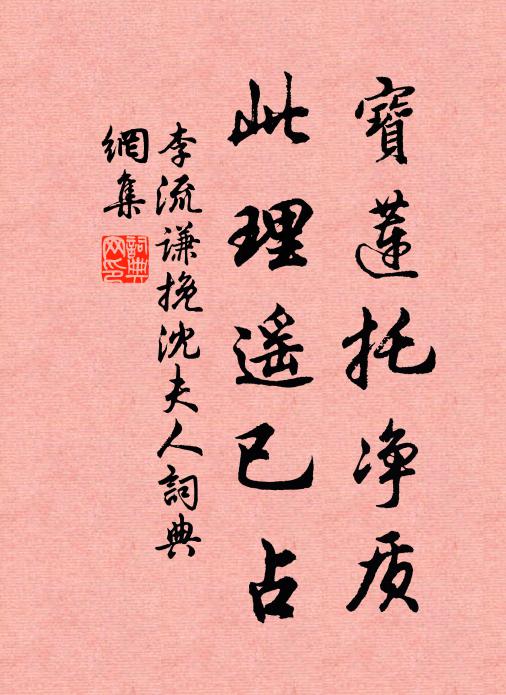 寶蓮托净质
此理遥已占
李流谦挽沈夫人詞典
網集
詞典網印